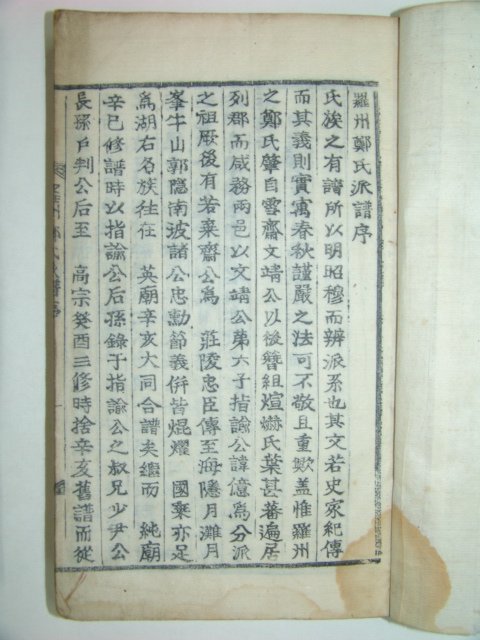 羅州鄭氏派譜序
氏族之有譜所以明昭穆而辨派系也其文若史家紀傳
而其義則實寓春秋謹嚴之法可不敬且重歟盖惟羅州
之鄭氏肇自雪齋文靖公以後簪組煊爀氏葉甚蕃遍居
列郡而咸務兩邑以文靖公第六子指諭公諱億爲分派
之祖厥後有若棄齋公爲　莊陵忠臣傳至海隱月灘月
峯牛山郭隱南波諸公忠勳節義併皆焜燿　國乘亦足
爲湖右名族徃徃　英廟辛亥大同合譜矣繼而　純廟
辛巳修譜時以指諭公后孫錄于指諭公之叔兄少尹公
長孫戶判公后至　高宗癸酉三修時捨辛亥舊譜而從